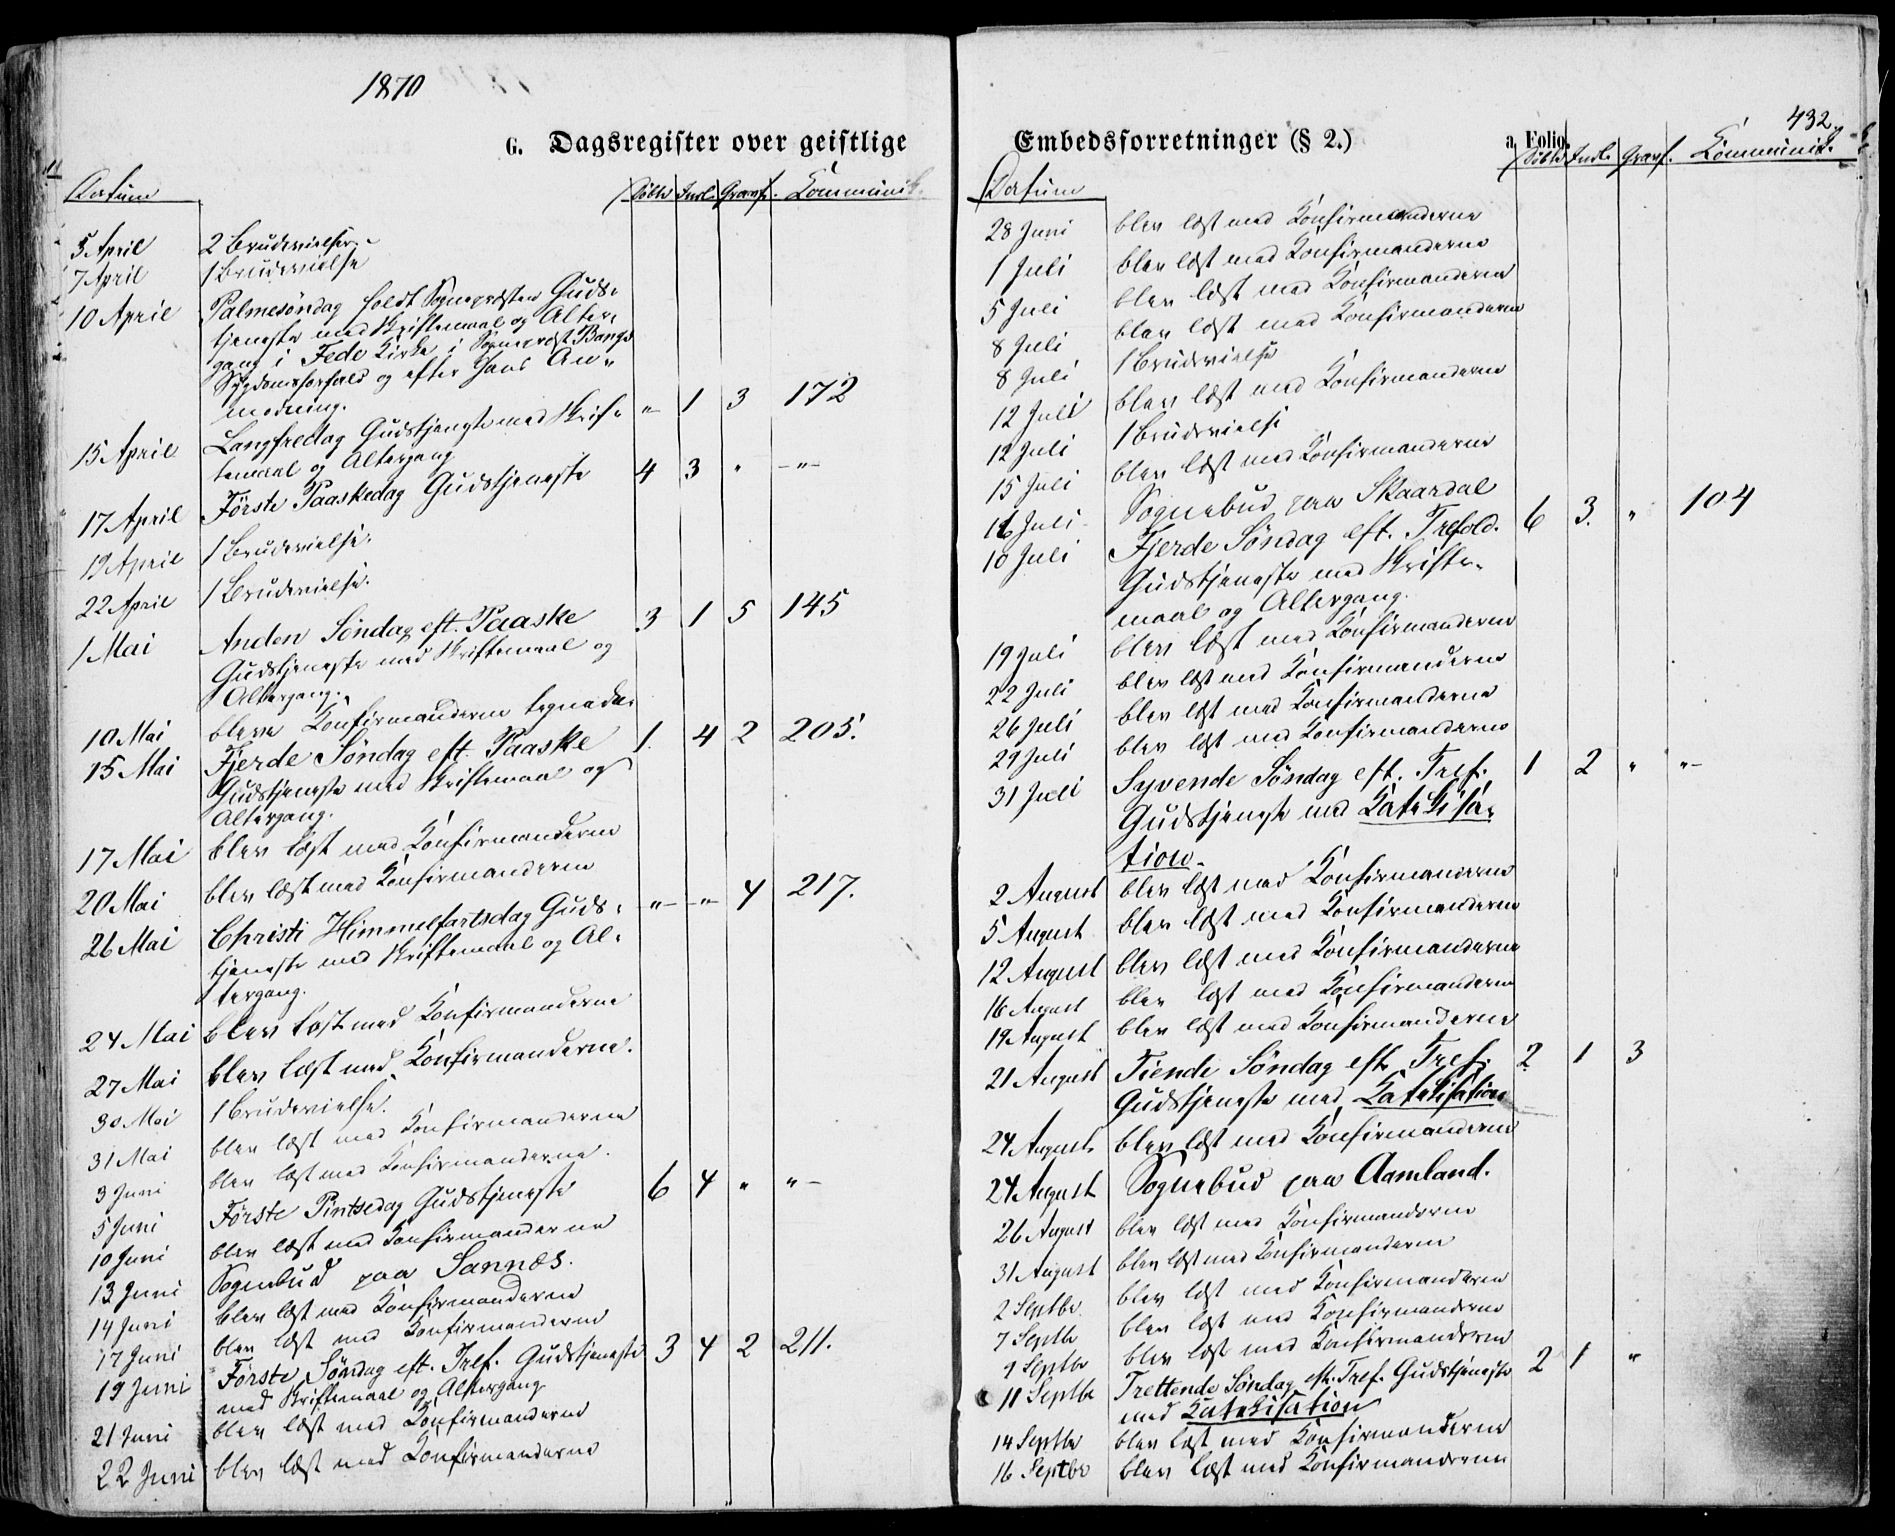 1870
G. Dagsregister over geistlige
Datum Døbte Indl. Gravf. Kommunik.
5 April 2 Brudevielser.
7 April 1 Brudevielse
10 April Palmesøndag holdt Sognepræsten Guds-
tjeneste med Skriftemaal og Alter-
gang i Fede Kirke i Sognepræst Bangs
Sygdomsforfald og efter hans An-
modning. „ 1 3 172
15 April Langfredag Gudstjeneste med Skrif-
temaal og Altergang 4 3 „ -„-
17 April Første Paaskedag Gudstjeneste
19 April 1 Brudevielse.
22 April 1 Brudevielse.
1 Mai Anden Søndag eft. Paaske 3 1 5 145
Gudstjeneste med Skriftemaal og
Altergang.
10 Mai bleve Konfirmanderne tegnede
15 Mai Fjerde Søndag eft. Paaske 1. 4 2 205.
Gudstjeneste med Skriftemaal og
Altergang.
17 Mai blev læst med Konfirmanderne
20 Mai blev læst med Konfirmanderne
26 Mai Christi Himmelfartsdag Guds- „ „ 4 217.
tjeneste med Skriftemaal og Al-
tergang.
24 Mai blev læst med Konfirmanderne
27 Mai blev læst med Konfirmanderne.
30 Mai 1 Brudevielse.
31 Mai blev læst med Konfirmanderne
3 Juni blev læst med Konfirmanderne.
5 Juni Første Pintsedag Gudstjeneste 6 4 „ „-
10 Juni blev læst med Konfirmanderne
13 Juni Sognebud paa Sannes.
14 Juni blev læst med Konfirmanderne
17 Juni blev læst med Konfirmanderne
19 Juni Første Søndag eft. Tref. Gudstjeneste 3 4 2 211.
med Skriftemaal og Altergang
21 Juni blev læst med Konfirmanderne
22 Juni blev læst med Konfirmanderne
432
Embedsforretninger (§ 2.) a. Folio.
Datum Døbte Indl. Gravf. Kommunik.
28 Juni blev læst med Konfirmanderne
1 Juli blev læst med Konfirmanderne
5 Juli blev læst med Konfirmanderne
8 Juli blev læst med Konfirmanderne
8 Juli 1 Brudevielse
12 Juli blev læst med Konfirmanderne
12 Juli 1 Brudevielse
15 Juli blev læst med Konfirmanderne
16 Juli Sognebud paa Skaardal
10 Juli Fjerde Søndag eft. Trefold. 6 3. „ 104
Gudstjeneste med Skrifte-
maal og Altergang.
19 Juli blev læst med Konfirmanderne
22 Juli blev læst med Konfirmanderne
26 Juli blev læst med Konfirmanderne
29 Juli blev læst med Konfirmanderne
31 Juli Syvende Søndag eft. Tref. 1 2 „ „-
Gudstjeneste med Katekisa-
tion.
2 August blev læst med Konfirmanderne
5 August blev læst med Konfirmanderne
12 August blev læst med Konfirmanderne
16 August blev læst med Konfirmanderne
19 August blev læst med Konfirmanderne
21 August Tiende Søndag eft. Tref. 2 1 3
Gudstjeneste med Katekisation
24 August blev læst med Konfirmanderne
24 August Sognebud paa Aamland.
26 August blev læst med Konfirmanderne
31 August blev læst med Konfirmanderne
2 Septbr. blev læst med Konfirmanderne
7 Septbr blev læst med Konfirmanderne
9 Septbr blev læst med Konfirmanderne
11 Septbr Trettende Søndag eft. Tref. Gudstjeneste 2 1 „
med Katekisation
14 Septbr blev læst med Konfirmanderne
16 Septbr blev læst med Konfirmanderne